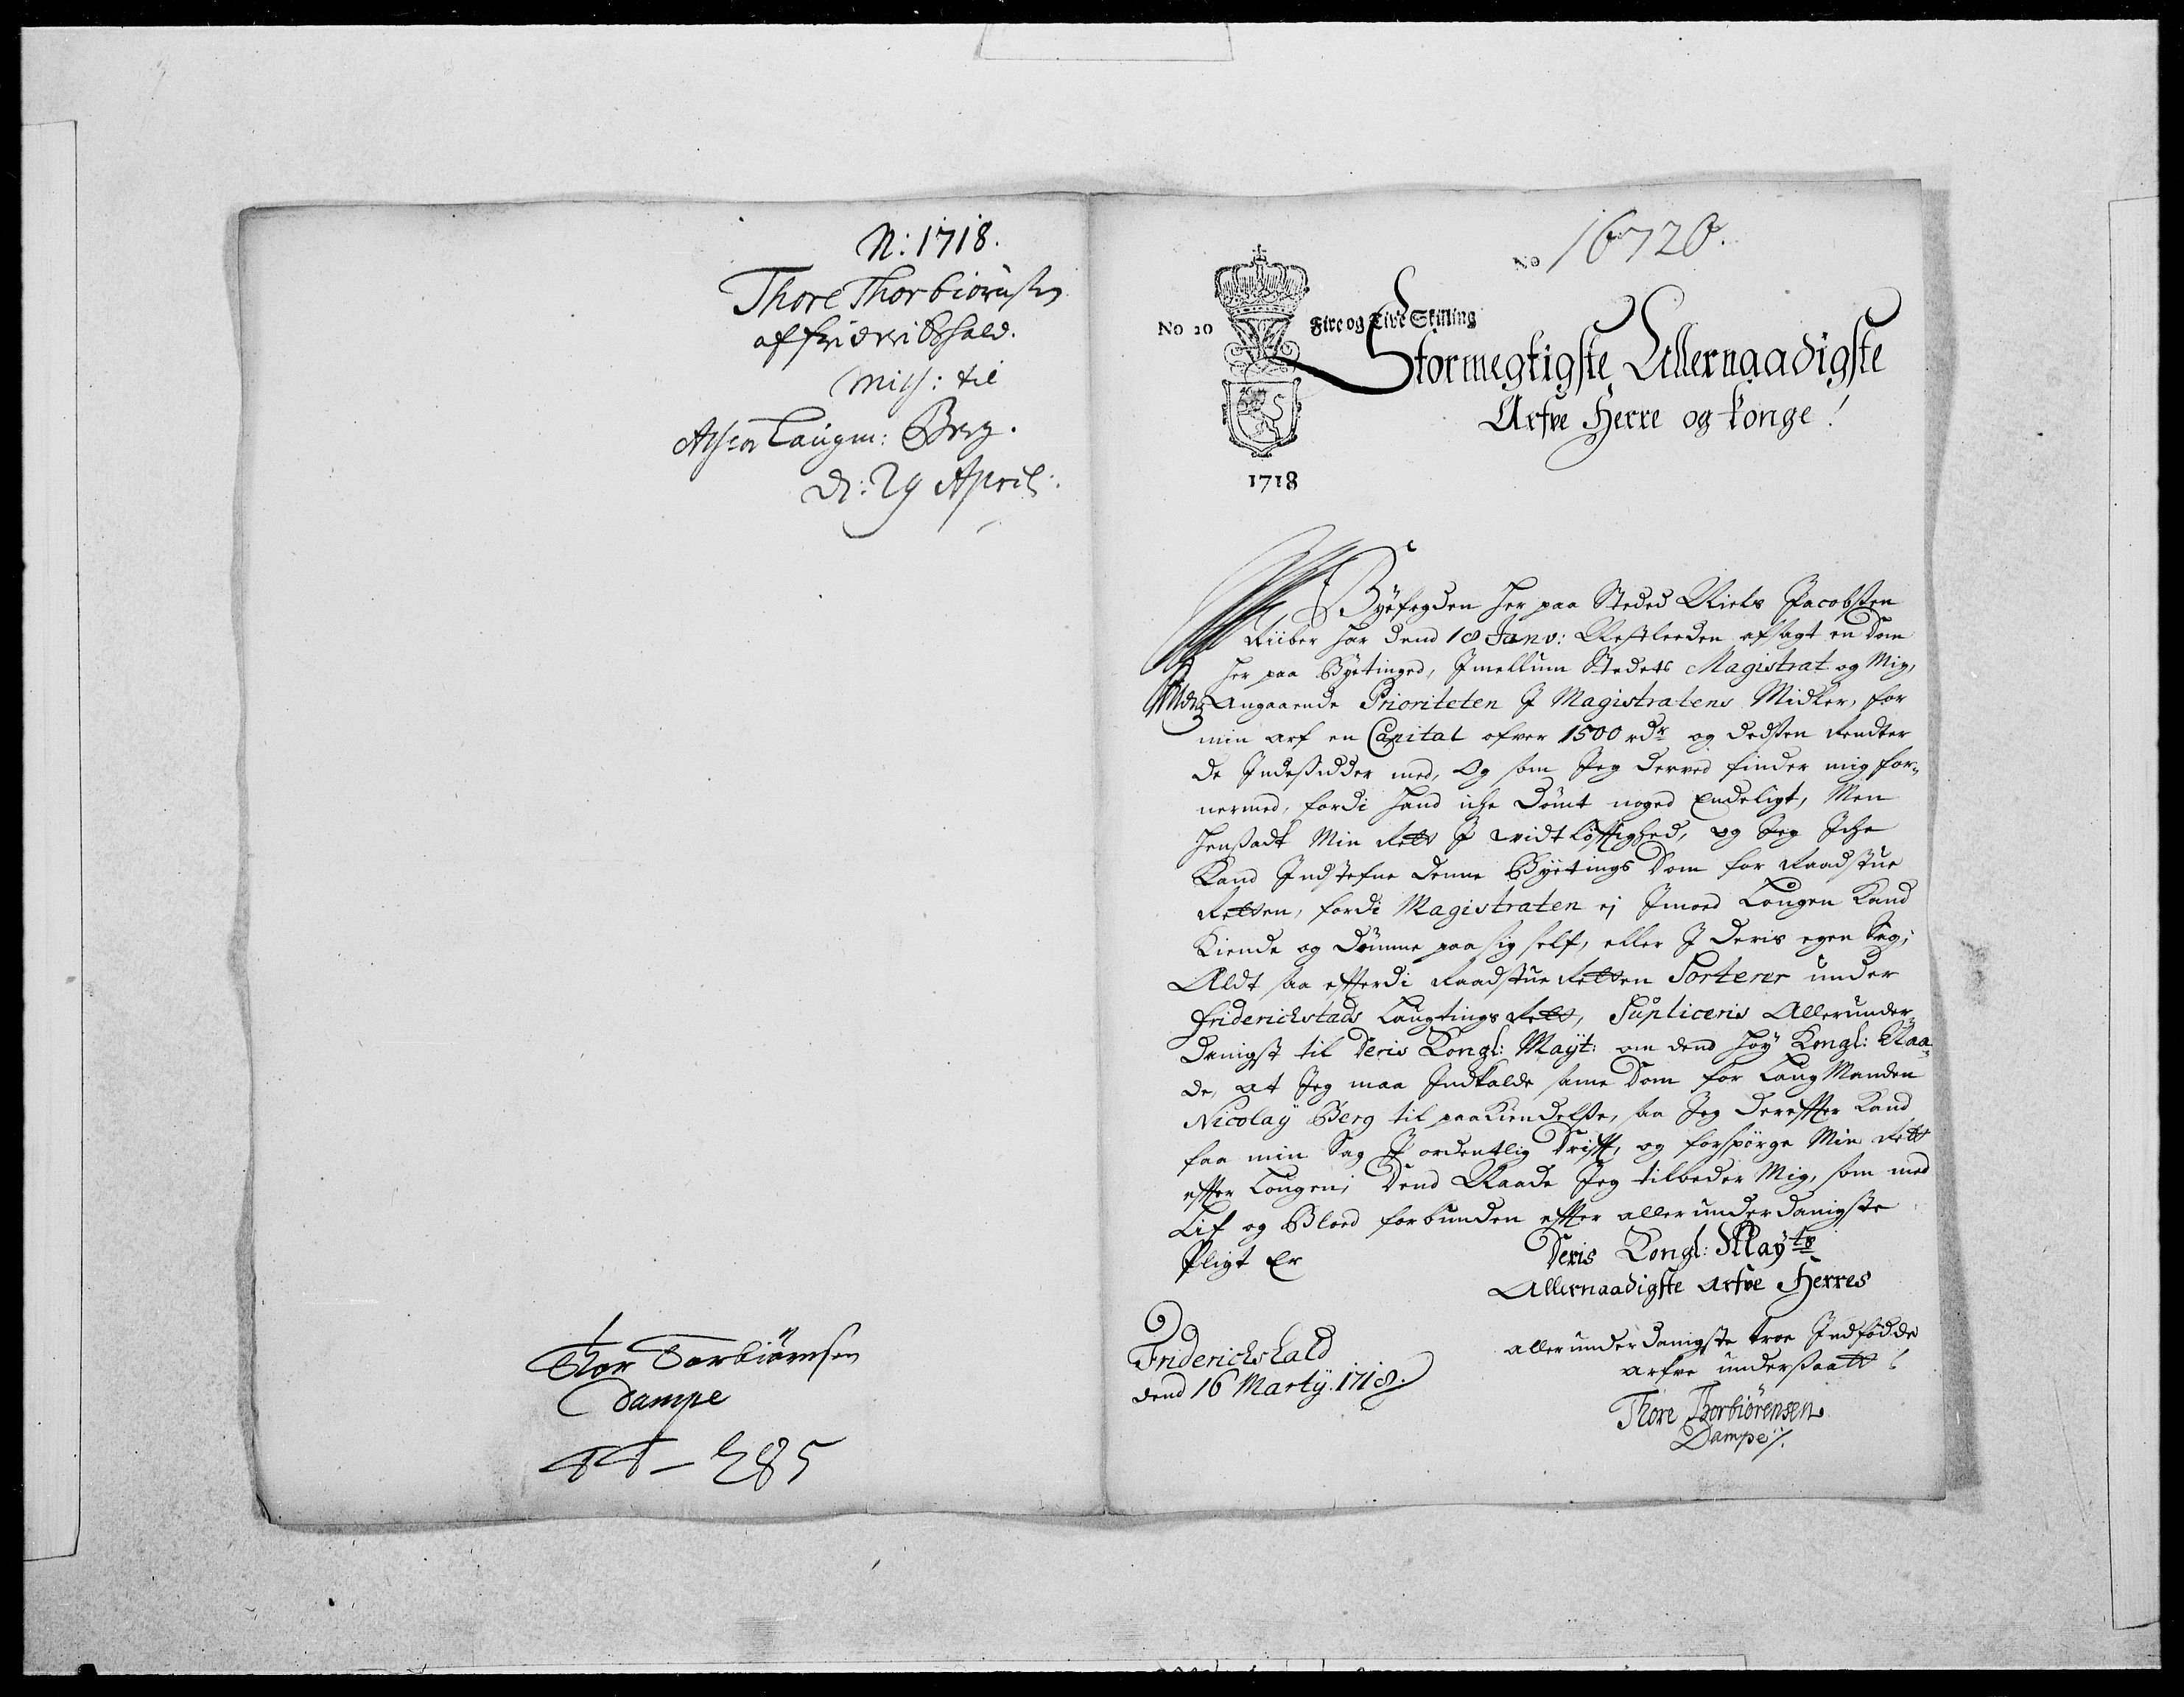 N: 1718.
Thore Thorbiørnsen
af friderichshald.
Miss: til
Assessor Laugm: Berg.
d: 29 April:
Thor Torbiørnsen
Dampe
285
No 16720.
No 20 Fire og Tive Skilling
1718
Stormegtigste Allernaadigste
Arfve Herre og Konge!
Byefogden her paa Steded Niels Jacobsen
Riiber har dend 18 Janv: Nestleeden afsagt en Dom
her paa Byetinged, Imellum Stedets Magistrat og Mig,
Angaaende Prioriteten I Magistratens Midler, for
min arf en Capital ofver 1500 rdr og dessen Rendter
de Indesidder med, Og som Jeg derved finder mig for-
nermed, fordi hand iche Dømt noged Endeligt, Men
hensadt Min Rett I vidtløftighed, og Jeg Iche
Kand Indstefne denne Byetings Dom for Raadstue
Retten, fordi Magistraten ej Imod Lougen Kand
Kiende og Dømme paa sig self, eller I deris egen Sag;
Aldt saa efterdi Raadstue Retten Sorterer under
Friderichstads Laugtings Rett, Supliceris Allerunder-
danigst til Deris Kongl: Mayt: om dend høy Kongl: Naa-
de, at Jeg maa Indkalde samme Dom for Laug Manden
Nicolay Berg til paakiendelse, saa Jeg derefter Kand
faa min Sag I ordentlig Drift, og forspørge Min Rett
efter Lougen; Dend Naade Jeg tilbeder Mig, som med
Lif og Bloed forbunden efter allerunderdanigste
Pligt Er
Deris Kongl: Mayts
Allernaadigste Arfve Herres
Friderichshald
dend 16 Martÿ. 1718.
allerunderdanigste troe Indfødde
arfve undersaatt
Thore Thorbiørensen
Dampe